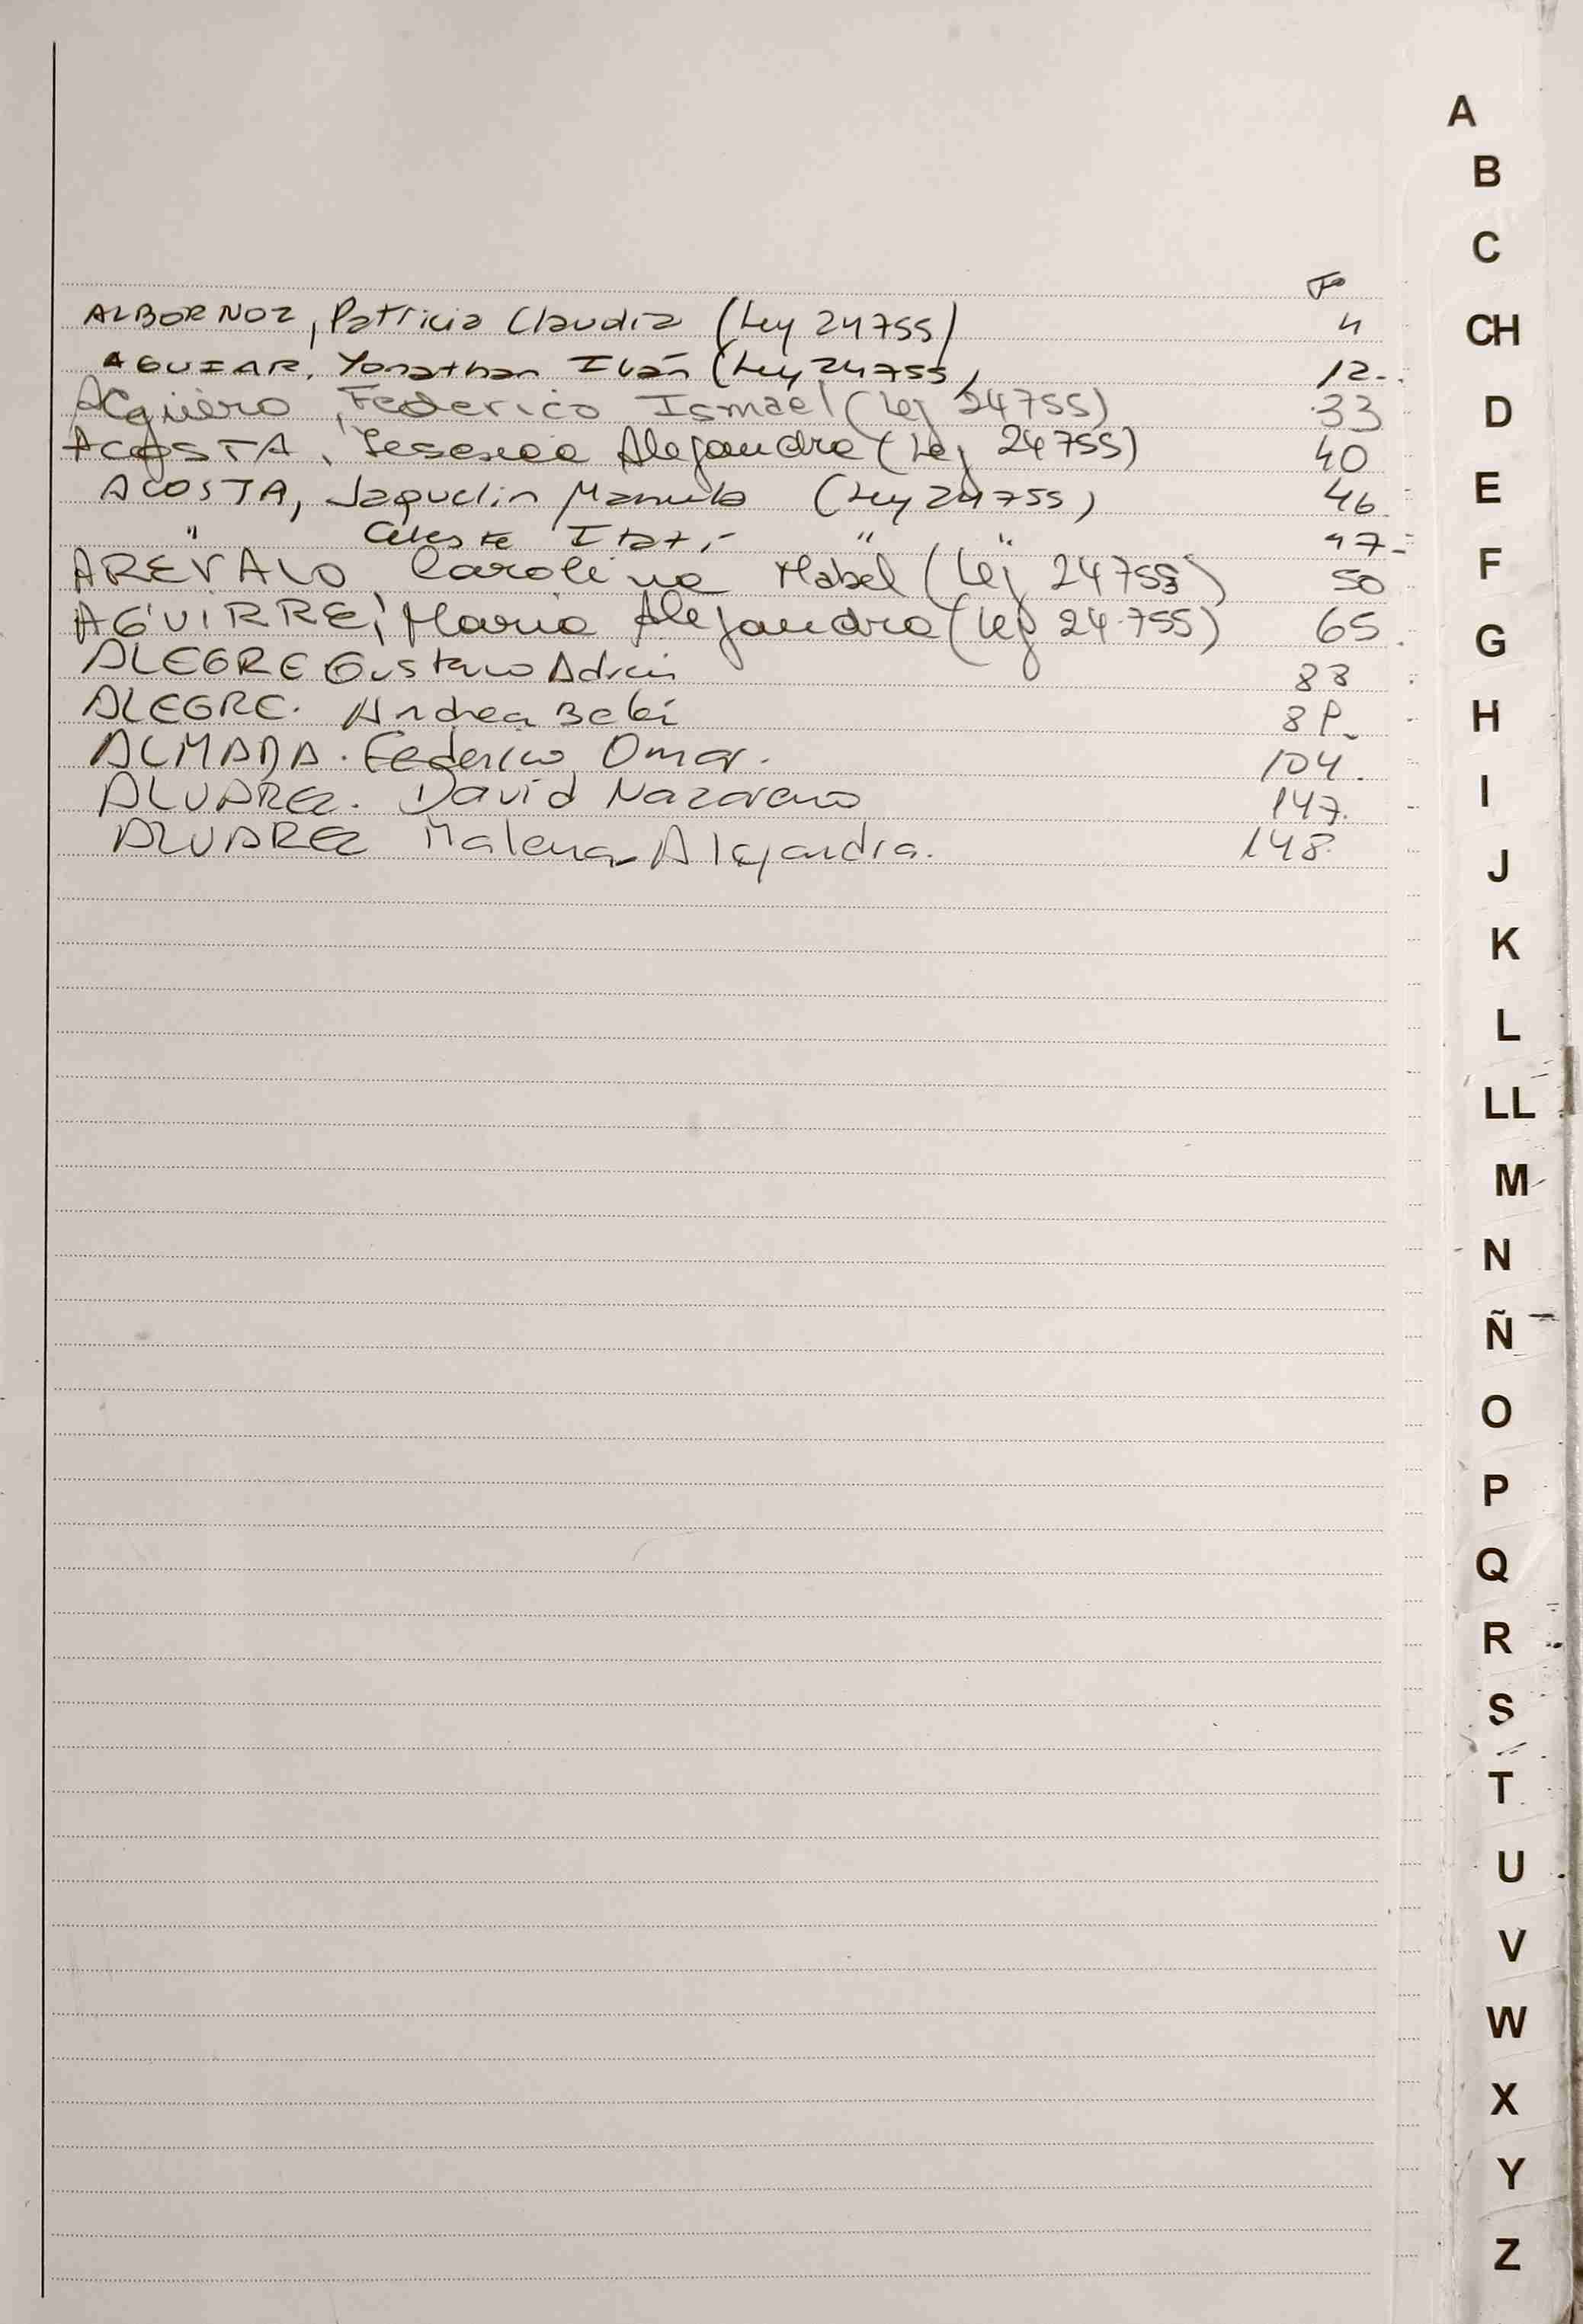 Fº
ALBORNOZ, Patricia Claudia (Ley 24755) 4
AGUIAR, Yonathan Iván (Ley 24755) 12-
Agüero, Federico Ismael (Ley 24755) 33
ACOSTA, Alejandra (Ley 24755) 40
ACOSTA, Jaquelin Mamub (Ley 24755) 46
" Celeste Itatí " " 47-
AREVALO Carolina Mabel (Ley 24755) 50
AGUIRRE, Maria Alejandra (Ley 24.755) 65
ALEGRE Gustavo Adrian 83
ALEGRE. Andrea Belén
ALMADA. Federico Omar. 104.
ALVAREZ. David Nazareno 147.
ALVAREZ Malena Alejandra. 148.
A
B
C
CH
D
E
F
G
H
I
J
K
L
LL
M
N
Ñ
O
P
Q
R
S
T
U
V
W
X
Y
Z